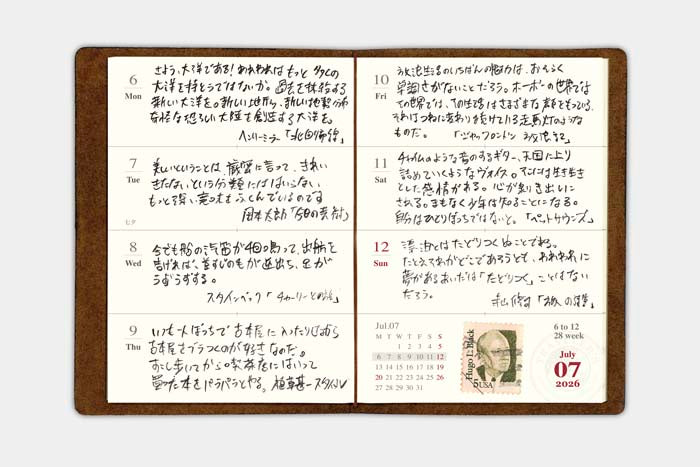 6
Mon
さよう、大洋である！われわれはもっと多くの
大洋を持とうではないか。過去を抹殺する
新しい大洋を。新しい地から、新しい地勢
奇怪な恐ろしい大陸を創造する大洋を。
ヘンリー・ミラー「北回帰線」
7
Tue
七夕
美しいということは、厳密に言って、きれい
きたない、という分類にははいらない、
もっと深い、意味をふくんでいるのです
岡本太郎「今日の芸術」
8
Wed
今でも船の汽笛が4回鳴って、出航を
告げれば、首すじのもが逆立ち、足が
うずうずする。
スタインベック「チャーリーとの旅」
9
Thu
いつも一人ぼっちで古本屋に入ったりしながら
古本屋をブラつくのが好きなのだ。
すこし歩いてから喫茶店にはいって
買った本をパラパラとやる。植草甚一スタイル
10
Fri
放浪生活のいちばんの魅力は、おそらく
単調さがないことだろう。ホーボーの世界では
その世界では、生活はさまざまな顔をもっている
それはつねに変わり続けている走馬灯のような
ものだ。「ジャック・ロンドン放浪記」
11
Sat
チャイムのような音のするギター、天国に上り
詰めていくようなヴォイス。そこには生き生き
とした感情がある。心が剥き出しに
される。まもなく少年は知ることになる。
自分はひとりぼっちではないと。「ペット・サウンズ」
12
Sun
漂泊とはたどりつくぬことである。
たとえそれがどこであろうとも、われわれに
夢があるあいだは「たどりつく」ことはない
だろう。寺山修司
Jul.07
M T W T F S S
1 2 3 4 5
6 7 8 9 10 11 12
13 14 15 16 17 18 19
20 21 22 23 24 25 26
27 28 29 30 31
Hugo L. Black
5 USA
6 to 12
28 week
July
07
2026